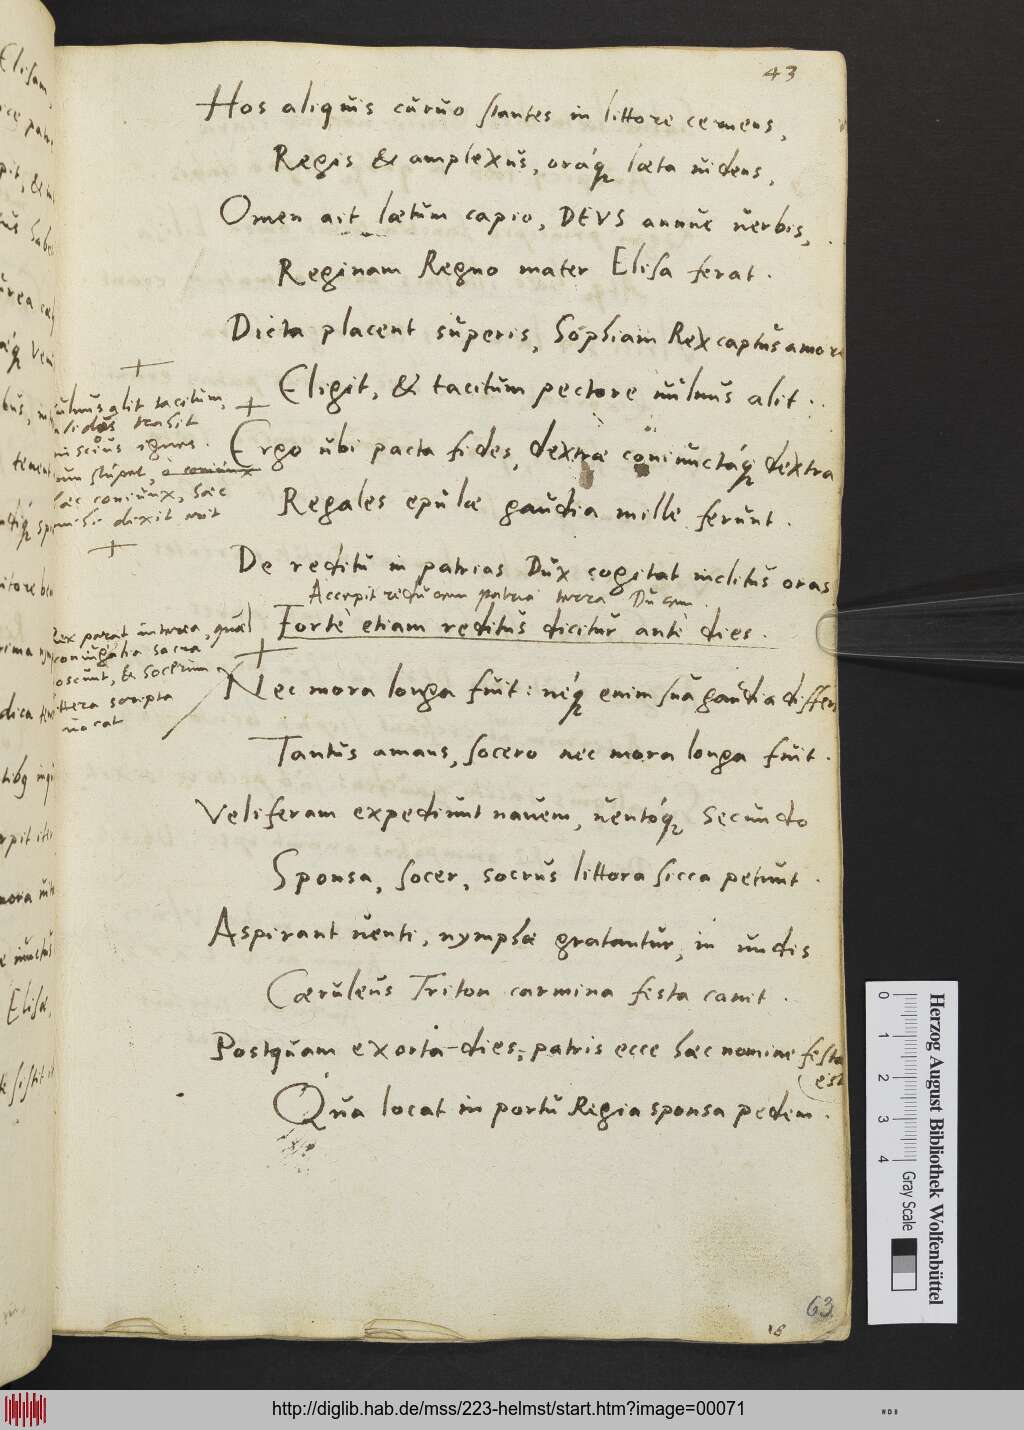 43
Hos aliquis curuo stantes in littore cernens,
Regis & amplexus, oráq; læta uidens,
Omen ait lætum capio, DEVS annue uerbis,
Reginam Regno mater Elisa ferat.
Dicta placent superis, Sophiam Rex captus amore
Eligit, & tacitum pectore uulnus alit.
Ergo ubi pacta fides, dextræ coniunctáq; dextra
Regales epulæ gaudia mille ferunt.
De reditu in patrias Dux cogitat inclitus oras
Accepit reducem patria terra Ducem.
Forte etiam reditus dicitur ante dies.
Nec mora longa fuit: neq; enim sua gaudia differt
Tantus amans, socero nec mora longa fuit.
Veliferam expediunt nauem, uentóq; secundo
Sponsa, socer, socrus littora sicca petunt.
Aspirant uenti, nymphæ gratantur, in undis
Cæruleus Triton carmina festa canit.
Postquam exorta dies, patris ecce hæc nomine festa
est
Qua locat in portu Regia sponsa pedem.
uulnus alit tacitum,
ualidus transit
ignes.
stupet, o coniunx
hæc coniunx, hæc
mihi dixit erit
Rex parat interea, quæ
coniugalia sacra
poscunt, & socerum
littera scripta
uocat
Elisam,
63
18
Herzog August Bibliothek Wolfenbüttel
0 1 2 3 4
Gray Scale
http://diglib.hab.de/mss/223-helmst/start.htm?image=00071
WDB